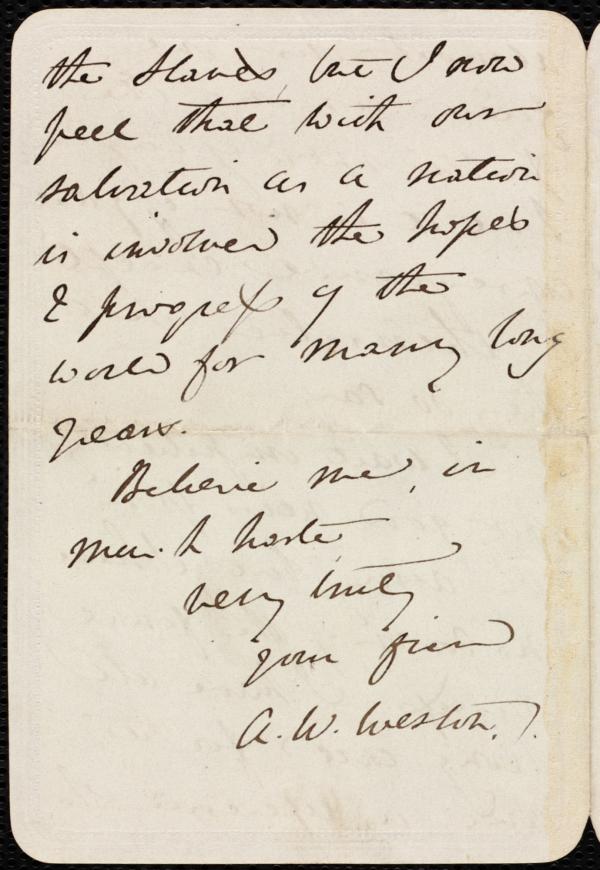 the slaves, but I now
feel that with our
salvation as a nation
is involved the hopes
& progress of the
world for many long
years.
Believe me, in
much haste
very truly
your friend
A. W. Weston.